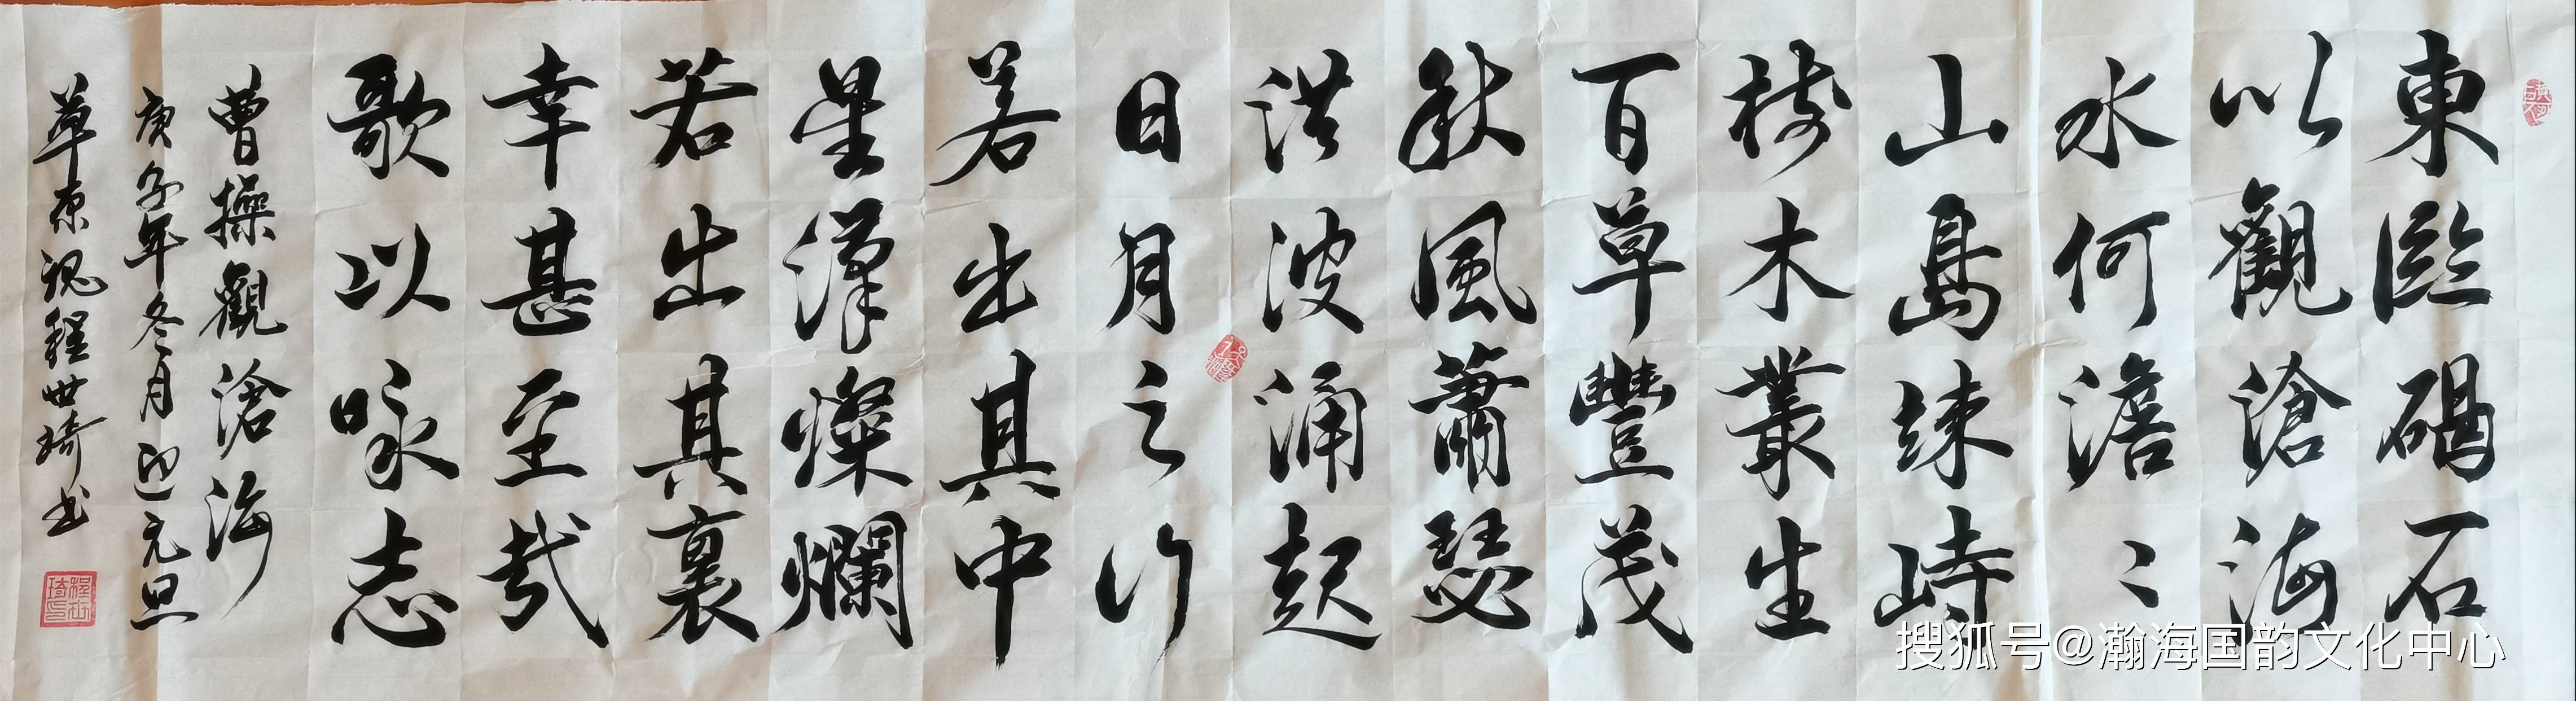 東臨碣石
以觀滄海
水何澹〻
山島竦峙
樹木叢生
百草豐茂
秋風蕭瑟
洪波涌起
日月之行
若出其中
星漢燦爛
若出其裏
幸甚至哉
歌以咏志
曹操觀滄海
庚子年冬月迎元旦
草原魂程世琦书
程世琦印
搜狐号@瀚海国韵文化中心